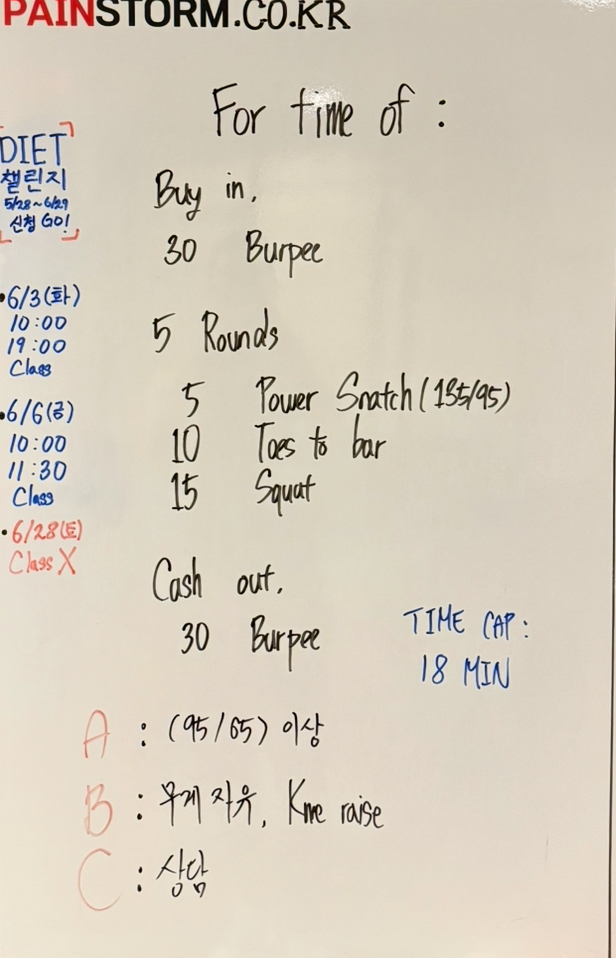 PAINSTORM.CO.KR
For time of :
Buy in.
30 Burpee
5 Rounds
5 Power Snatch (135/95)
10 Toes to bar
15 Squat
Cash out.
30 Burpee
TIME CAP :
18 MIN
A : (95/65) 이상
B : 무게 자유, Knee raise
C : 상담
DIET
챌린지
5/28~6/29
신청 GO!
•6/3(화)
10:00
19:00
Class
•6/6(금)
10:00
11:30
Class
•6/28(토)
Class X